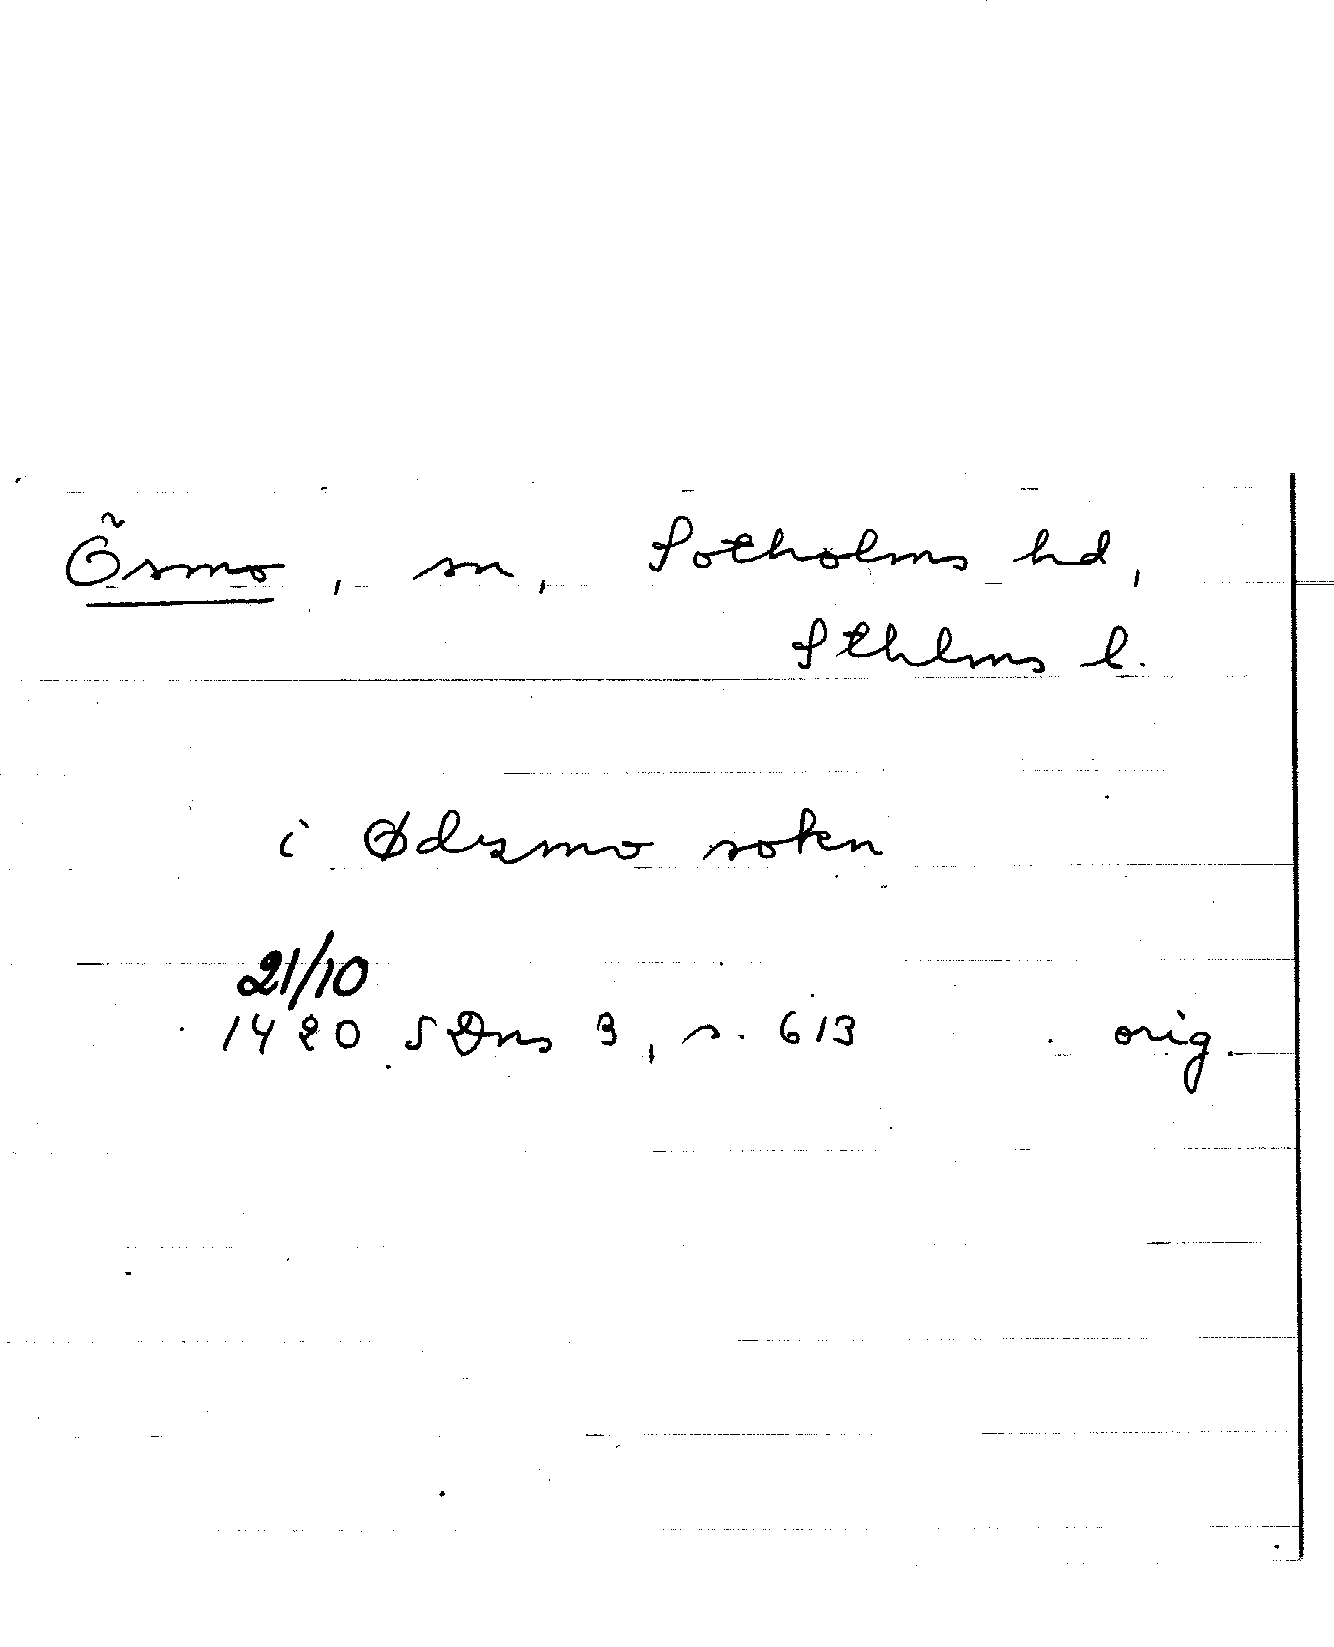 Ösmo, sn, Sotholms hd,
Sthlms l.
i Ødzmo sokn
21/10
1420 SDns 3, s. 613 orig.